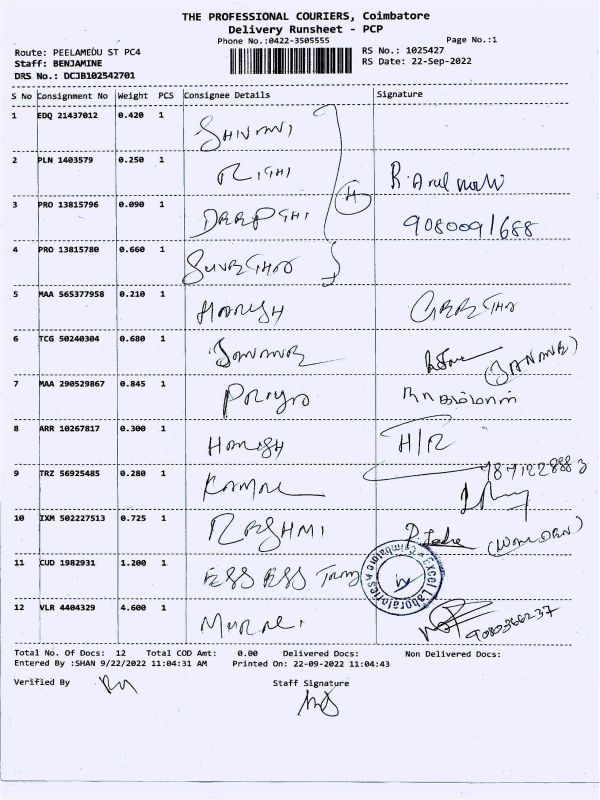 THE PROFESSIONAL COURIERS, Coimbatore
Delivery Runsheet - PCP
Phone No.:0422-3505555
Page No.:1
Route: PEELAMEDU ST PC4
RS No.: 1025427
Staff: BENJAMINE
RS Date: 22-Sep-2022
DRS No.: DCJB102542701
S No Consignment No Weight PCS Consignee Details Signature
1 EDQ 21437012 0.420 1 SHIVANI
2 PLN 1403579 0.250 1 RISHI
3 PRO 13815796 0.090 1
9080091688
4 PRO 13815780 0.660 1
5 MAA 565377958 0.210 1 HARISH
6 TCG 50240304 0.680 1
7 MAA 290529867 0.845 1 PRIYA
8 ARR 10267817 0.300 1 HARISH H/R
9 TRZ 56925485 0.280 1 KAMAL
10 IXM 502227513 0.725 1 RESHMI
11 CUD 1982931 1.200 1 ESS ESS
Excel Laboratories Coimbatore
12 VLR 4404329 4.600 1 MURALI
Total No. Of Docs: 12 Total COD Amt: 0.00 Delivered Docs: Non Delivered Docs:
Entered By :SHAN 9/22/2022 11:04:31 AM Printed On: 22-09-2022 11:04:43
Verified By Staff Signature